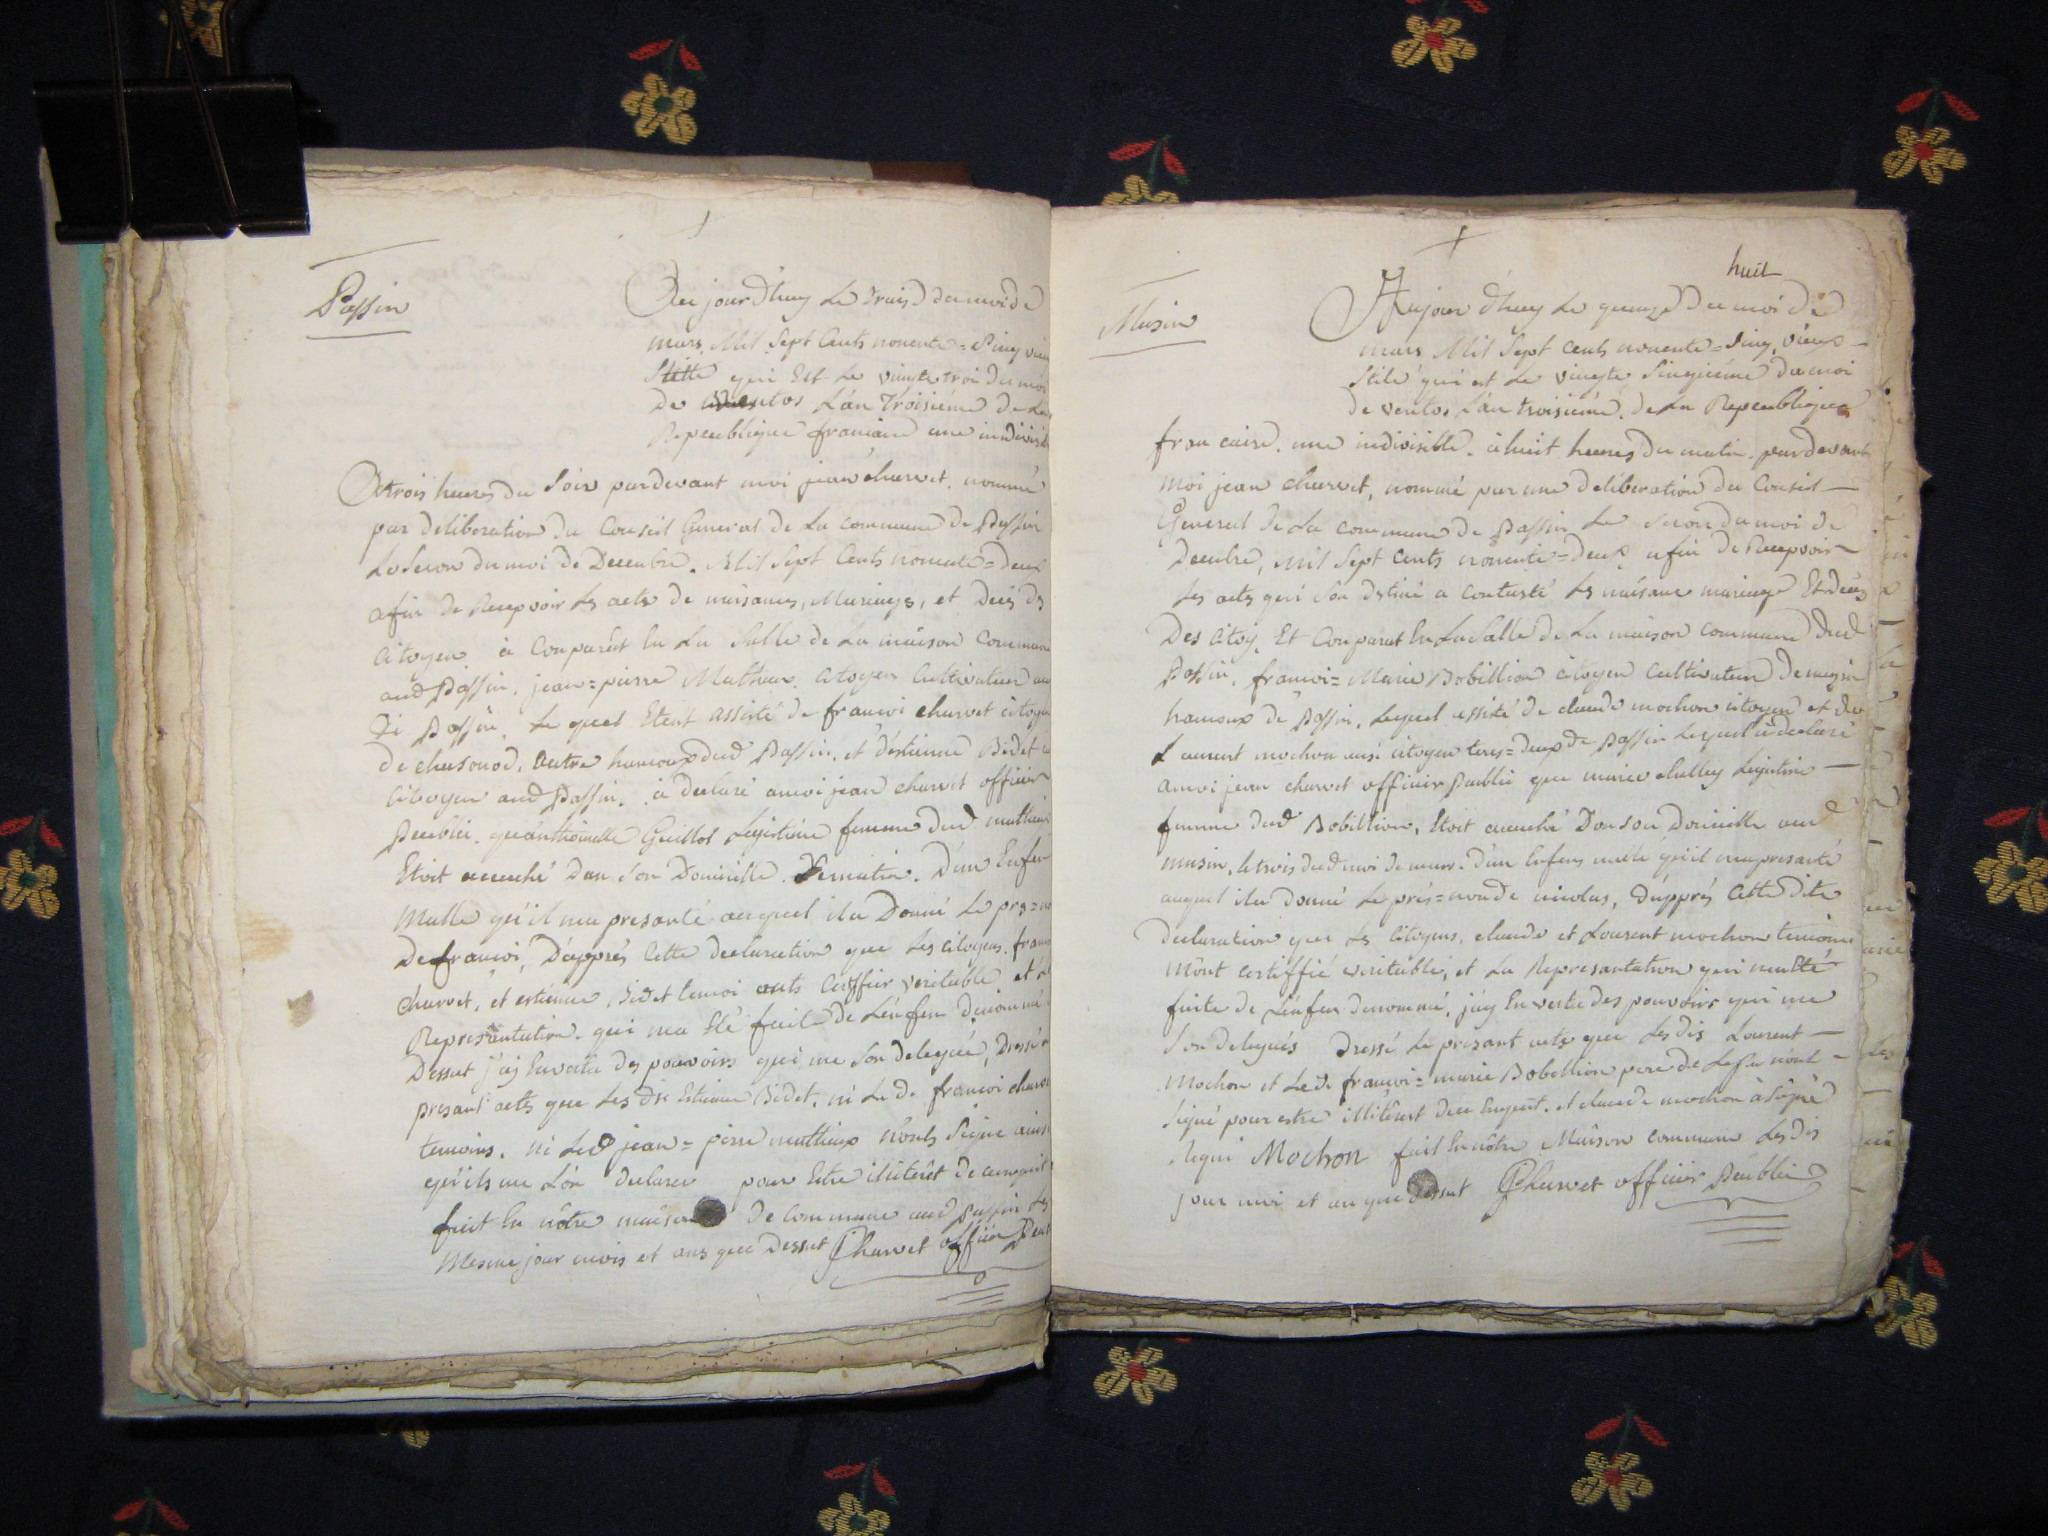 Passin
Au jour d'huy Le trais du moi de
mars Mil Sept Cents nonente = Sinq vieu
Stille qui Est Le vingte troi du moi
de ventos L'an Troisiéme de La
Republique franciaire une indivisib
A trois heures du Soir pardevant moi jean charvet, nommé
par deliberation du Conseil General de La commune de Passin
Le Secon du moi de Decembre. Mil Sept Cents nonente = deux
afin de Recepvoir Les acts de naisances, Mariages, et Deces ds
Citoyen à Conparût En La Salle de La maison Commune
aud Passin, jean = pierre Mathieux Citoyen Cultivateur au
di Passin, Le quel Etent assisté de francoi charvet citoyen
de chasonod, autre hamoux dud Passin, et d'éstienne Bidet
Citoyen aud Passin, à declaré a moi jean charvet officier
Peublic. qu'anthoinette Guillot Legistime femme dud mathieu
Etoit acuché Dan Son Domicille Ce matin. D'un Enfen
Malle qu'il ma presanté auquel il a Donné Le pres = no
De francoi, D'apprés Cette declaration que Les citoyens. franc
Charvet, et estienne Bidet temoi onts Ceriffier veritable et La
Represantation. qui ma Eté faite De L'énfen denommé
Dessut j'ay En vertu des pouvoirs qui me Son delegués, Dressé
presant acts que Les dis Estienne Bidet. ni Le D. francoi charv
temoins. ni Led jean = pierre mathieux n'onts Signe ainsi
qu'ils me L'on declarer pour Estre illitérêt de ce enquit
fait En nôtre maison de Commune aud Passin Les
Mesme jour mois et ans que Dessut JCharvet officier Peub
huit
Musin
Aujour d'huy Le quenze Du moi de
mars Mil Sept Cents nonente = Sinq, vieux
Stile qui est Le vingte Sinquiéme du moi
de ventos L'an troisiéme. de La Republique
francaise. une indivisible. à huit heures Du matin. pardevant
Moi jean charvet, nommé par une deliberation du Conseil
General de La commune de Passin Le Secon du moi de
Decembre, Mil Sept Cents nonente = deux afin de Recepvoir
Les acts qui Son Dstiné a Contasté Ls naisance mariage Et deces
Des Citoy. Et Conparut En La Salle de La maison commune Dud
Passin, francoi = Marie Bobillion citoyen Cultivateur de musin
hamoux de Passin. Lequel assité de claude mochon citoyen et de
Laurent mochon ausi citoyen tous = deux de Passin Lequel à declaré
a moi jean charvet officier Publié que marie chulley Legistime
femme dud Bobillion, Etoit acuché Dan Son Domicille aud
musin, Le trois dud moi de mars. d'un Enfens malle qu'il ma presanté
auquel il a donné Le prés = non de nicolas, d'apprés Cette dite
Declaration que Ls Citoyens, claude et Lourent mochon temoins
M'ont certiffié veritable, et La Represantation qui m'a Eté
faite de L'énfen denommé, j'ay En vertu des pouvoirs qui me
Son delegués Dressé Le presant acts que Les dis Lourent
Mochon et Le D. francoi = marie Bobillion pere de L'enfen n'ont
Signé pour estre illitêrêt dece Enquit. et claude mochon à Signé
Mochon fait En nôtre Maison commune Les dis
jour moi et an que dessut JCharvet officier Peublic